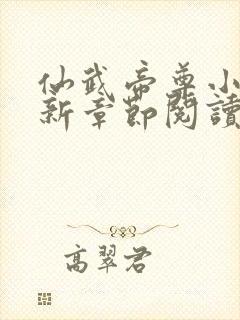 仙武帝尊小
新章節閱讀
高翠君